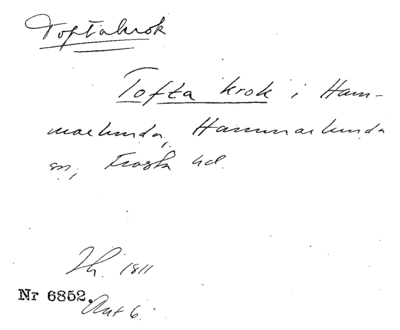 Toftakrok
Tofta krok i Ham-
marlunda, Hammarlunda
sn, Frosta hd.
Jh. 1811
Nr 6852. Akt 6.